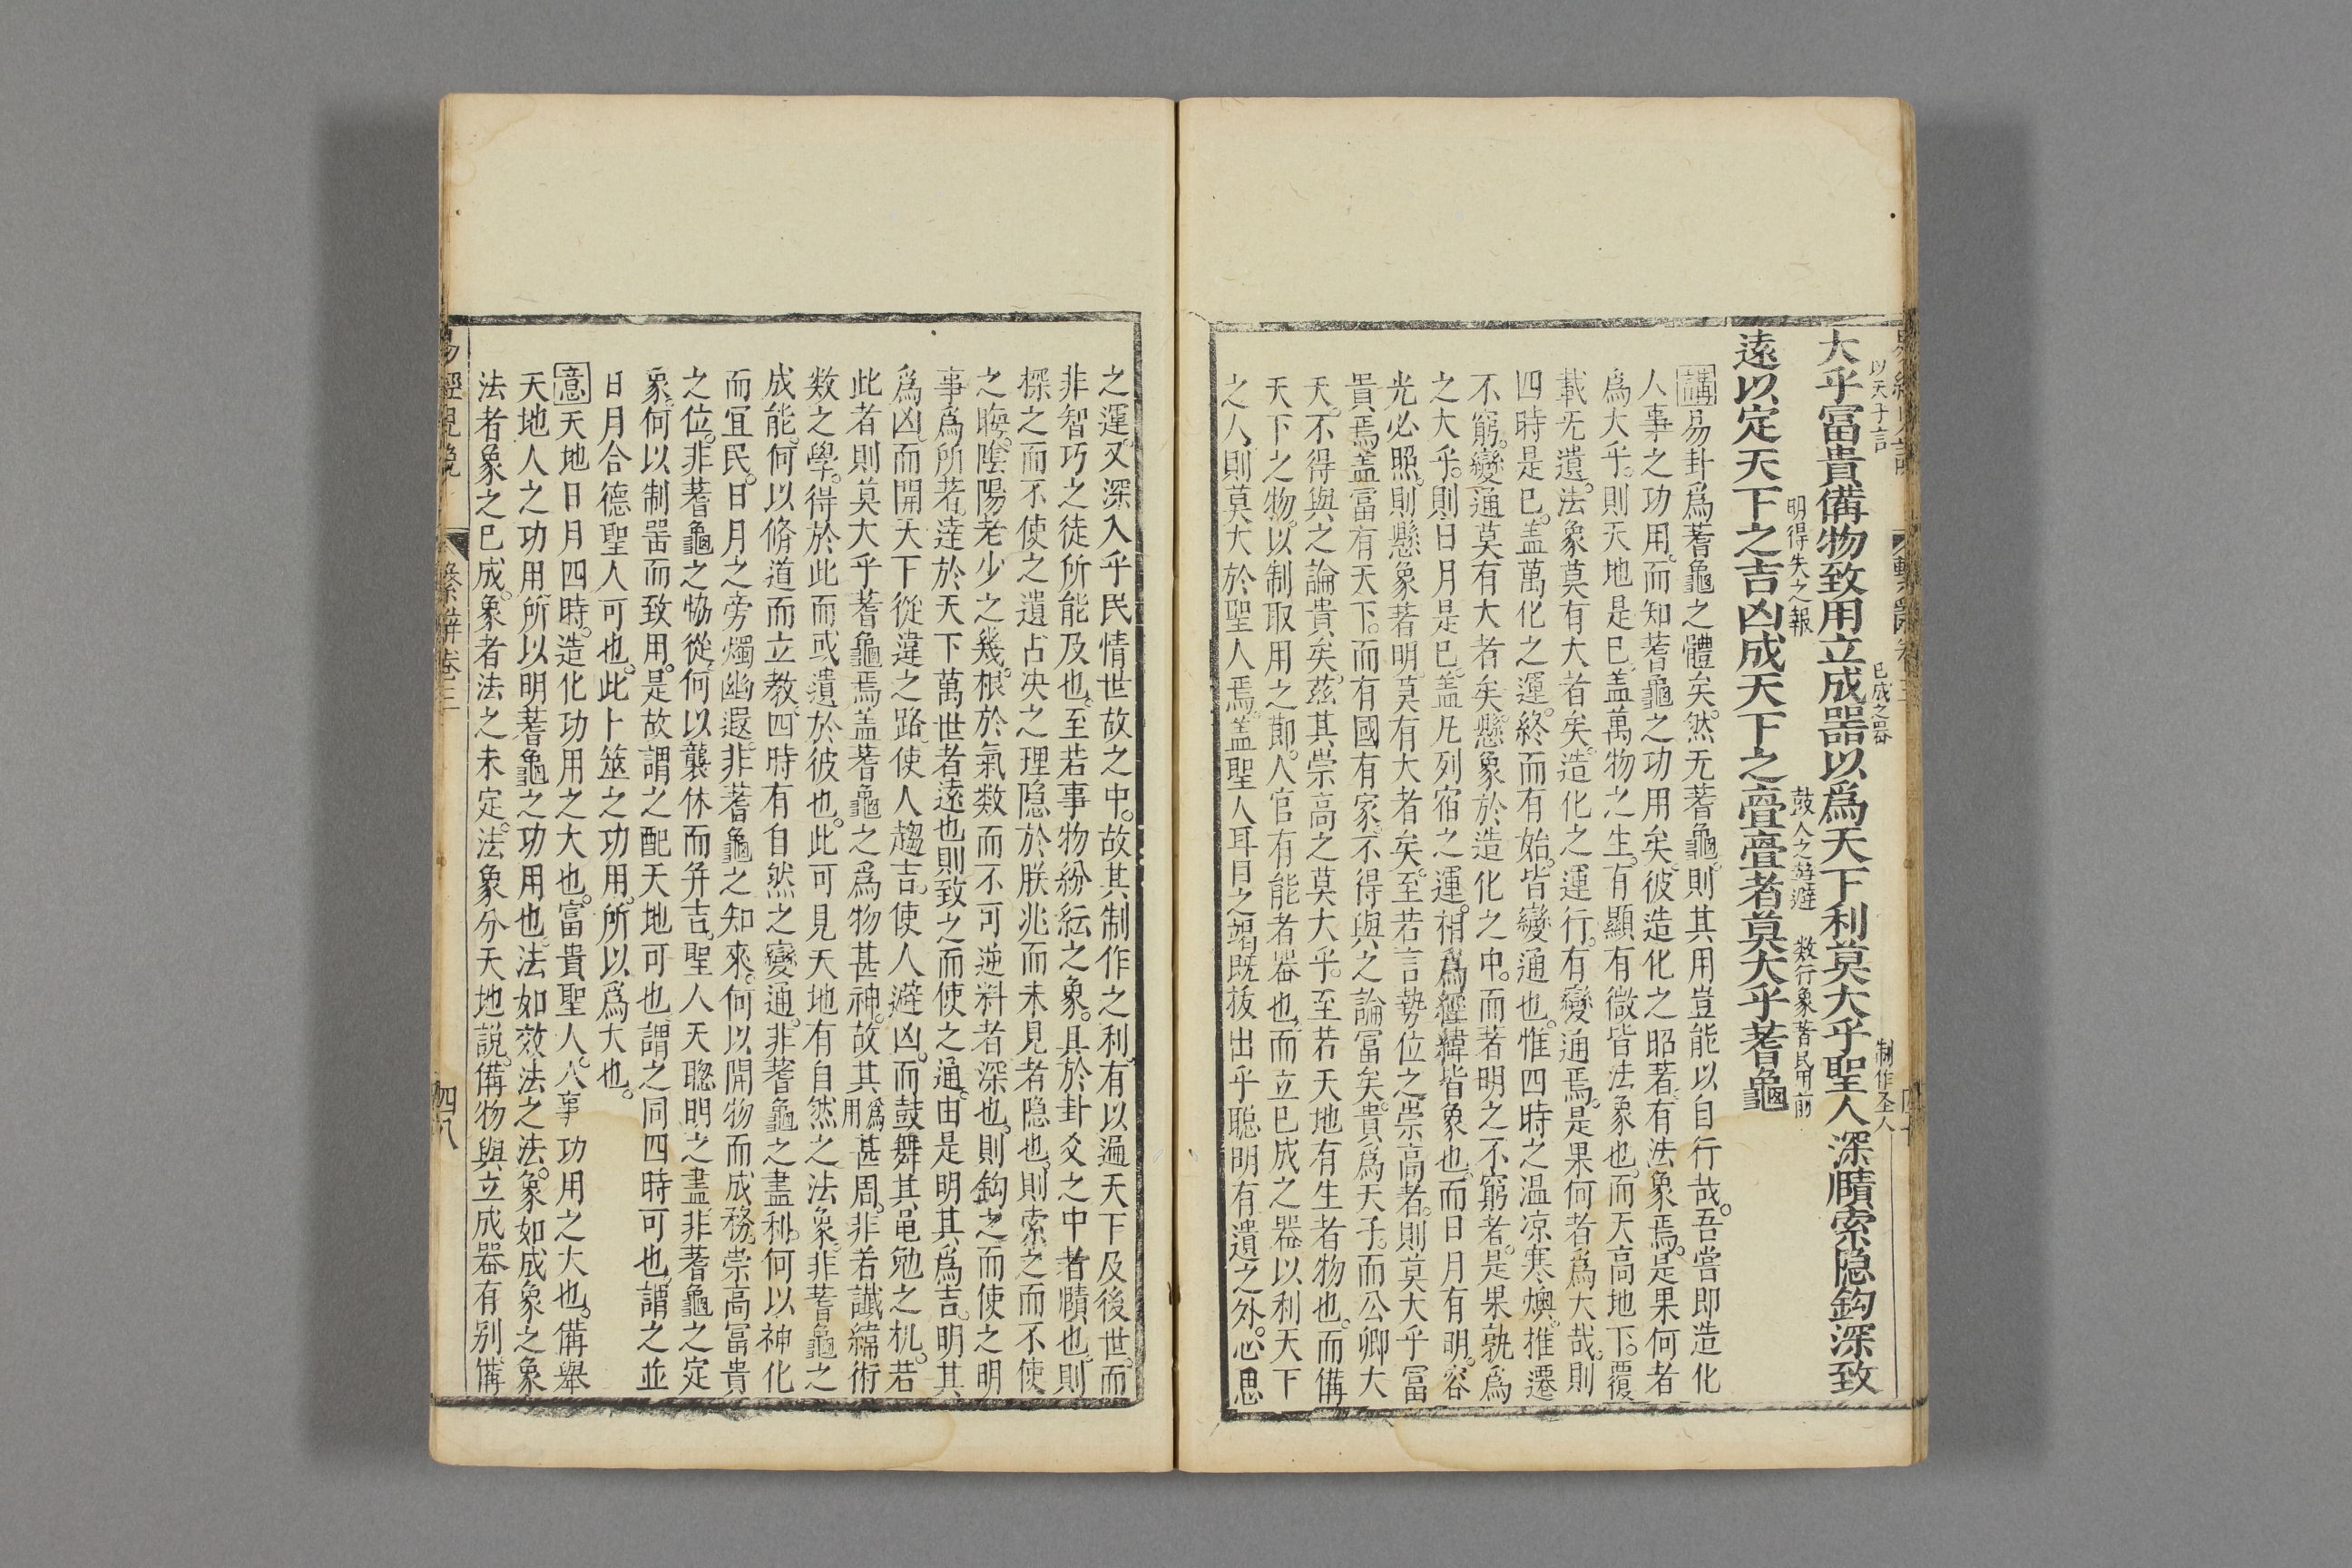 以天子言
已成之器
制作圣人
大乎富貴備物致用立成器以爲天下利莫大乎聖人深賾索隐鈎深致
明得失之報
鼓人之趋避
数行象著民用前
遠以定天下之吉凶成天下之亹亹者莫大乎蓍龜
講易卦爲蓍龜之體矣。然无蓍龜。則其用豈能以自行哉。吾嘗即造化
人事之功用。而知蓍龜之功用矣。彼造化之昭著。有法象焉。是果何者
爲大乎。則天地是已。盖萬物之生。有顯有微。皆法象也。而天高地下。覆
載无遺。法象莫有大者矣。造化之運行。有變通焉。是果何者爲大哉。則
四時是已。盖萬化之運。終而有始。皆變通也。惟四時之温凉寒燠。推遷
不窮。變通莫有大者矣。懸象於造化之中。而著明之不窮者。是果孰爲
之大乎。則日月是已。盖凡列宿之運。相爲經緯。皆象也。而日月有明。容
光必照。則懸象著明。莫有大者矣。至若言勢位之崇高者。則莫大乎冨
貴焉。盖富有天下。而有國有家。不得與之論冨矣。貴爲天子。而公卿大
夫。不得與之論貴矣。茲其崇高之莫大乎。至若天地有生者物也。而備
天下之物。以制取用之節。人官有能者器也。而立已成之器。以利天下
之人。則莫大於聖人焉。盖聖人耳目之竭。既抜出乎聡明有遺之外。心思
之運。又深入乎民情世故之中。故其制作之利。有以遍天下及後世。而
非智巧之徒所能及也。至若事物紛紜之象。具於卦爻之中者賾也。則
探之而不使之遺。占决之理。隐於朕兆而未見者隐也。則索之而不使
之晦。陰陽老少之幾。根於氣数而不可逆料者深也。則鈎之而使之明
事爲所者。逹於天下萬世者遠也。則致之而使之通。由是明其爲吉。明其
爲凶。而開天下從違之路。使人趨吉。使人避凶。而鼓舞其黾勉之机。若
此者則莫大乎蓍龜焉。盖蓍龜之爲物甚神。故其爲用甚周。非若讖緯術
数之學。得於此而或遺於彼也。此可見天地有自然之法象。非蓍龜之
成能。何以脩道而立教。四時有自然之變通。非蓍龜之盡利。何以神化
而宜民。日月之旁燭幽遐。非蓍龜之知來。何以開物而成務。崇高冨貴
之位。非蓍龜之恊從。何以襲休而并吉。聖人天聰明之盡。非蓍龜之定
象。何以制噐而致用。是故謂之配天地可也。謂之同四時可也。謂之並
日月合德聖人可也。此卜筮之功用。所以爲大也。
意天地日月四時。造化功用之大也。富貴聖人。人事功用之大也。備舉
天地人之功用。所以明蓍龜之功用也。法如效法之法。象如成象之象
法者象之已成。象者法之未定。法象分天地說。備物與立成器有别。備
易經見說
繫辭卷三
四八